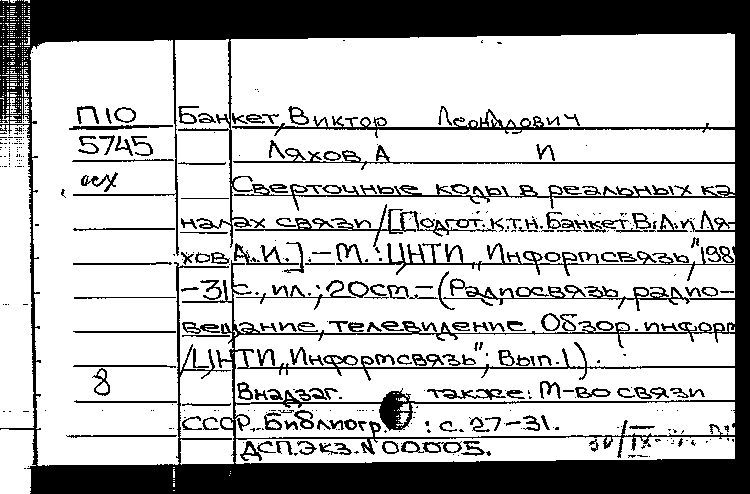 П10 Банкет, Виктор Леонидович,
5745 Ляхов, А И
Сверточные коды в реальных ка
налах связи /[Подгот. к.т.н. Банкет В.Л. и Ля-
хов А.И.].-М.: ЦНТИ „Информсвязь", 198
-31с., ил.; 20см.-(Радиосвязь, радио-
вещание, телевидение. Обзор. информ
/ЦНТИ „Информсвязь"; Вып.1).
8 Внадзаг. также: М-во связи
СССР. Библиогр. : с. 27-31.
ДСП. Экз. N 00005.